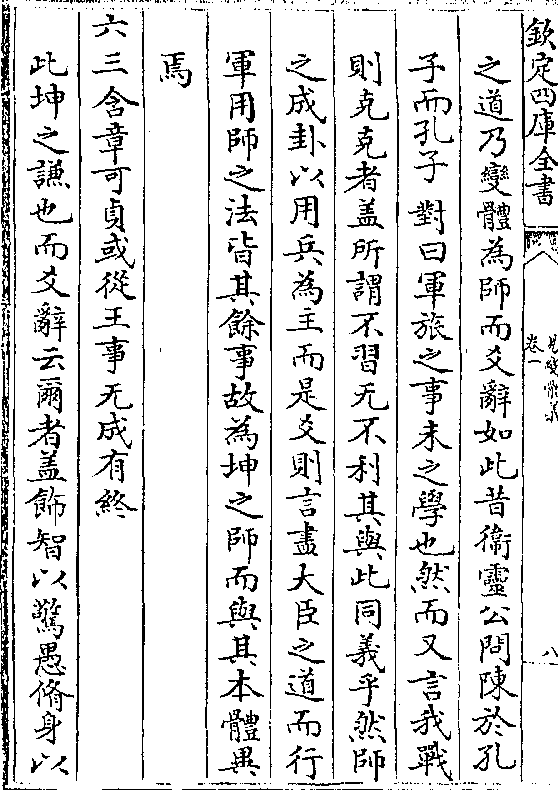 欽定四庫全書
卷一
八
之道乃變體為師而爻辭如此昔衛靈公問陳於孔
子而孔子對曰軍旅之事未之學也然而又言我戰
則克克者盖所謂不習无不利其與此同義乎然師
之成卦以用兵為主而是爻則言盡大臣之道而行
軍用師之法皆其餘事故為坤之師而與其本體異
焉
六三含章可貞或從王事无成有終
此坤之謙也而爻辭云爾者盖飾智以驚愚脩身以